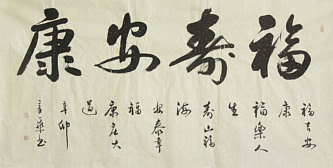 福寿安康
福吉安
康
福樂人
生
寿山福
海
安泰幸
福
康庄大
道
辛卯